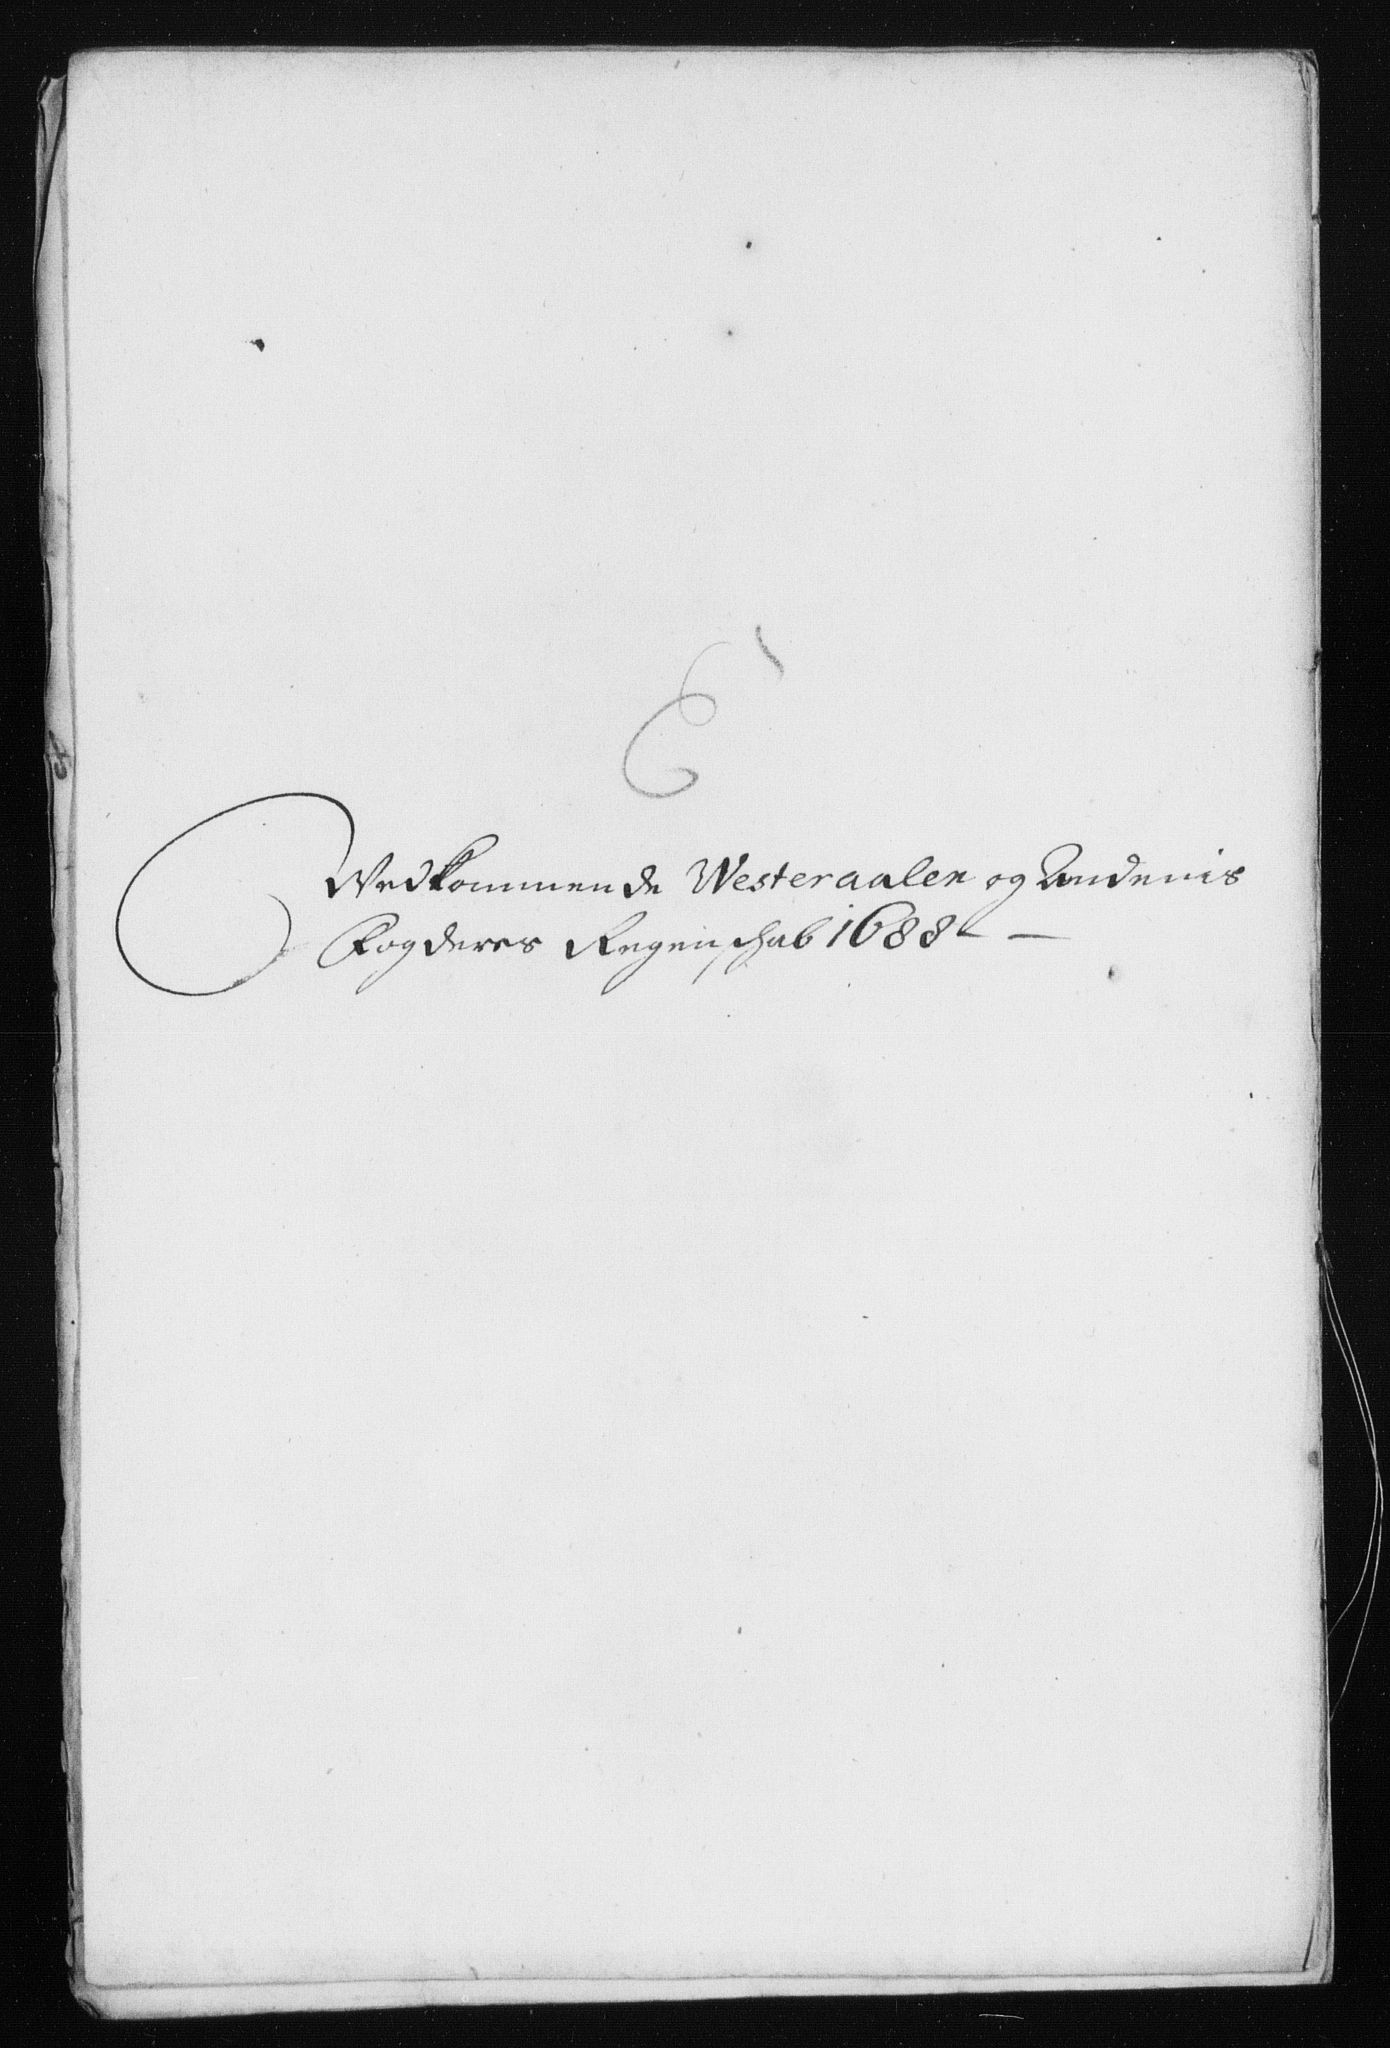 E
Vedkommende Westeraalen og Andenis
Fogderes Regenschab 1688